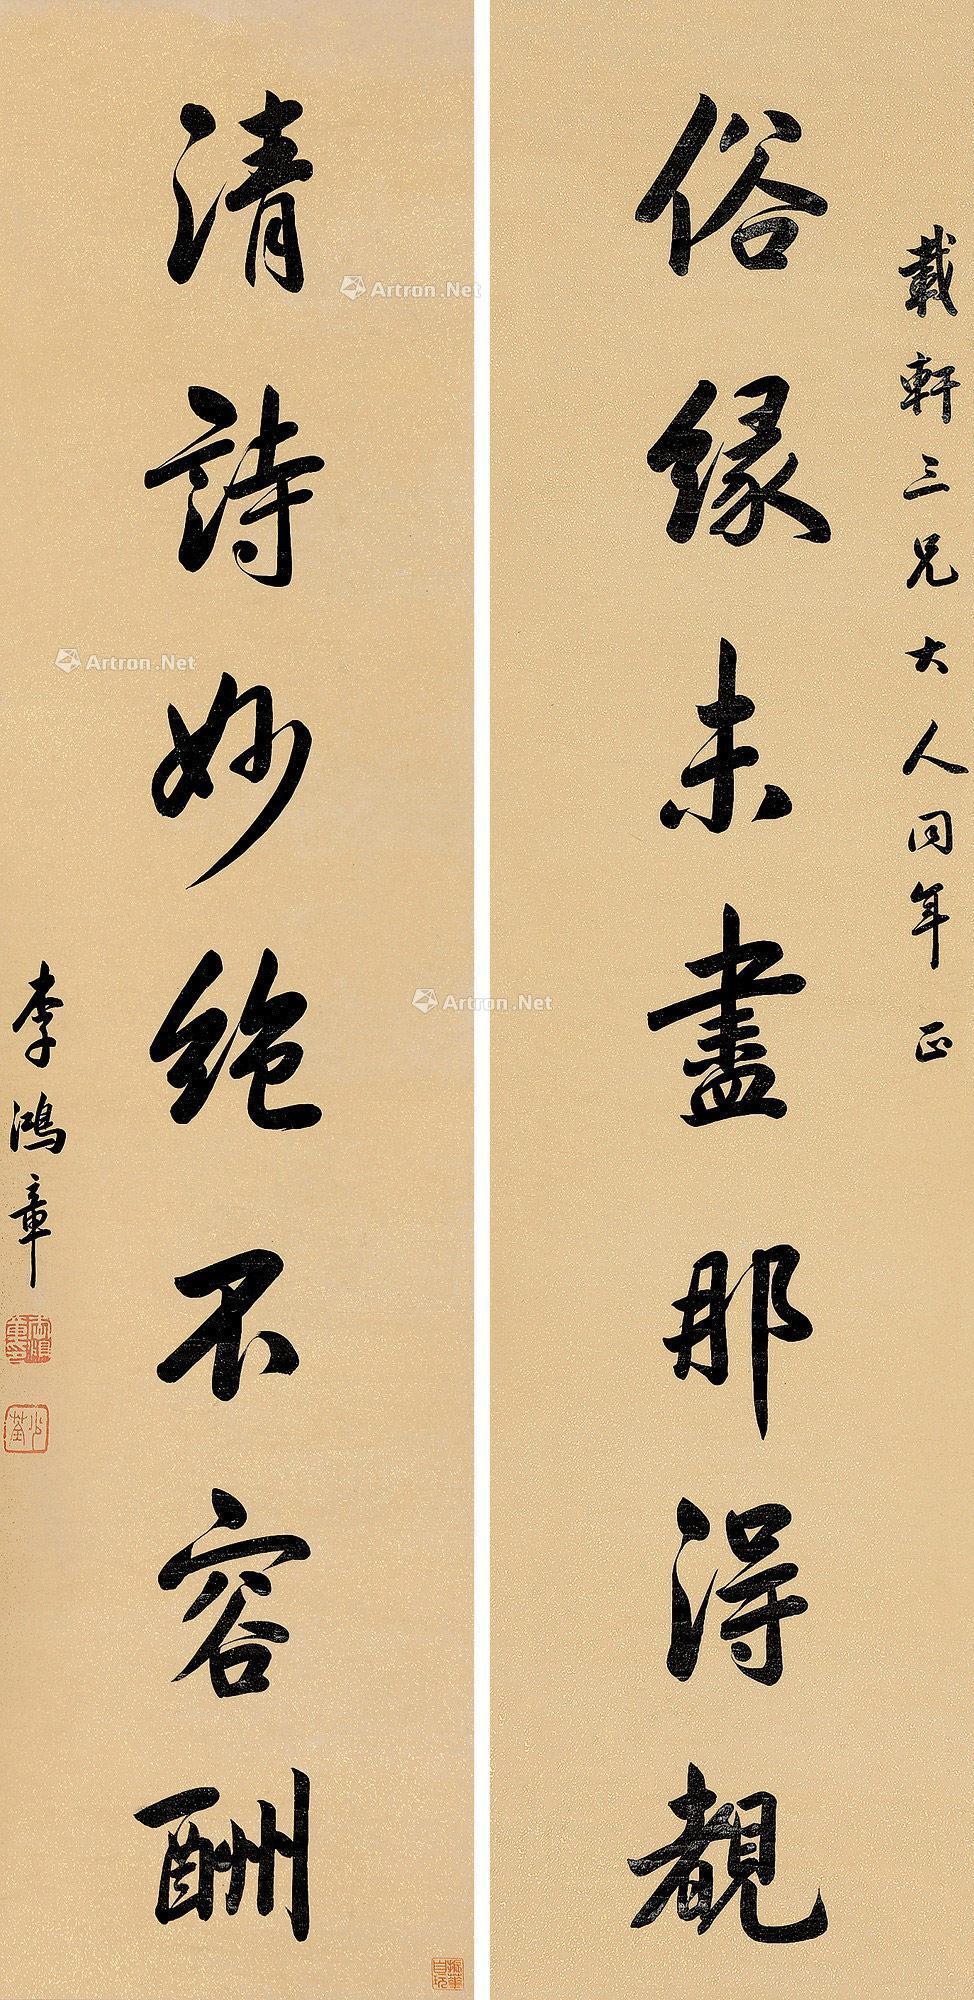 載軒三兄大人同年正
俗緣未盡那得覩
清詩妙絕不容酬
李鴻章
少荃
Artron.Net
Artron.Net
Artron.Net